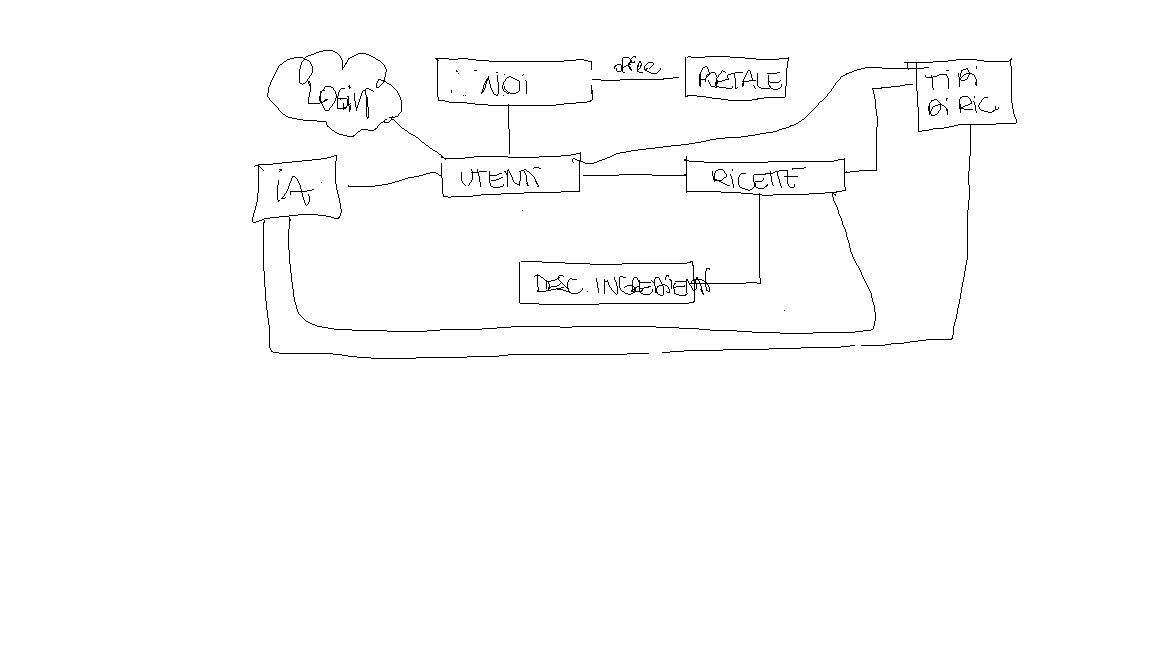 LOGIN
NOI
offre
PORTALE
TIPI
DI RIC.
IA
UTENTI
RICETTE
DESC. INGREDIENTI